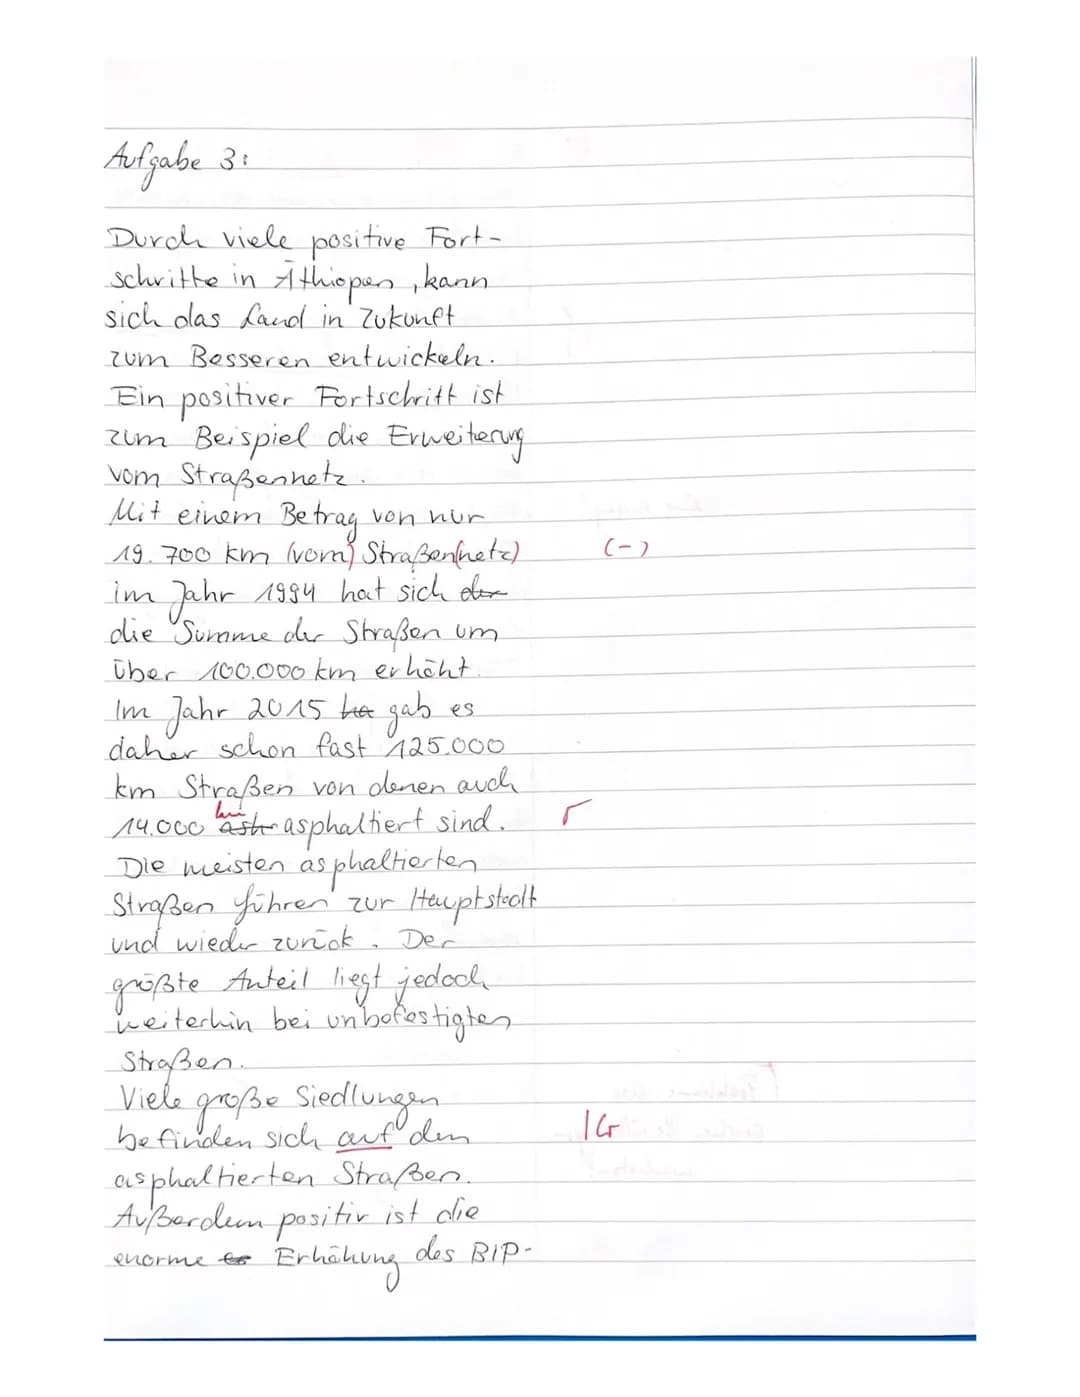 Aufgabe 3:
Durch viele positive Fort-
schritte in Äthiopen, kann
sich das Land in Zukunft
zum Besseren entwickeln.
Ein positiver Fortschritt ist
zum Beispiel die Erweiterung
vom Straßennetz.
Mit einem Betrag von nur
19.700 km (vom) Straßen(netz) (-)
im Jahr 1994 hat sich der
die Summe der Straßen um
über 100.000 km erhöht.
Im Jahr 2015 ha gab es
daher schon fast 125.000
km Straßen von denen auch
14.000 asph asphaltiert sind. r
Die meisten asphaltierten
Straßen führen zur Hauptstadt
und wieder zurück. Der
größte Anteil liegt jedoch
weiterhin bei unbefestigten
Straßen.
Viele große Siedlungen
befinden sich auf den |Gr
asphaltierten Straßen.
Außerdem positiv ist die
enorme Erhöhung des BIP-